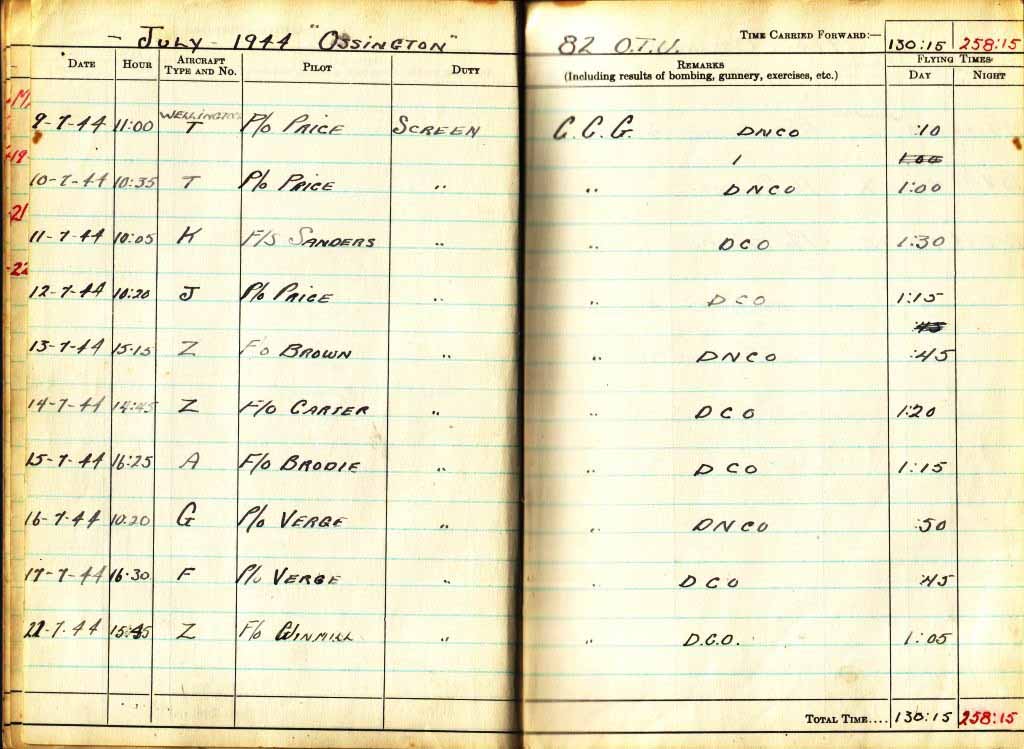 - JULY - 1944 "OSSINGTON" 82 O.T.U. TIME CARRIED FORWARD:— 130:15 258:15
DATE HOUR AIRCRAFT TYPE AND NO. PILOT DUTY REMARKS (Including results of bombing, gunnery, exercises, etc.) FLYING TIMES DAY NIGHT
9-7-44 11:00 WELLINGTON T P/O PRICE SCREEN C.C.G. DNCO :10
1:00
10-7-44 10:35 T P/O PRICE " " DNCO 1:00
11-7-44 10:05 K F/S SANDERS " " DCO 1:30
12-7-44 10:20 J P/O PRICE " " DCO 1:15
:45
13-7-44 15·15 Z F/O BROWN " " DNCO :45
14-7-44 14:45 Z F/O CARTER " " DCO 1:20
15-7-44 16:25 A F/O BRODIE " " DCO 1:15
16-7-44 10:20 G P/O VERGE " " DNCO :50
17-7-44 16·30 F P/O VERGE " " DCO :45
22-7-44 15:45 Z F/O WINMILL " " D.C.O. 1:05
TOTAL TIME.... 130:15 258:15
-19
-21
-22